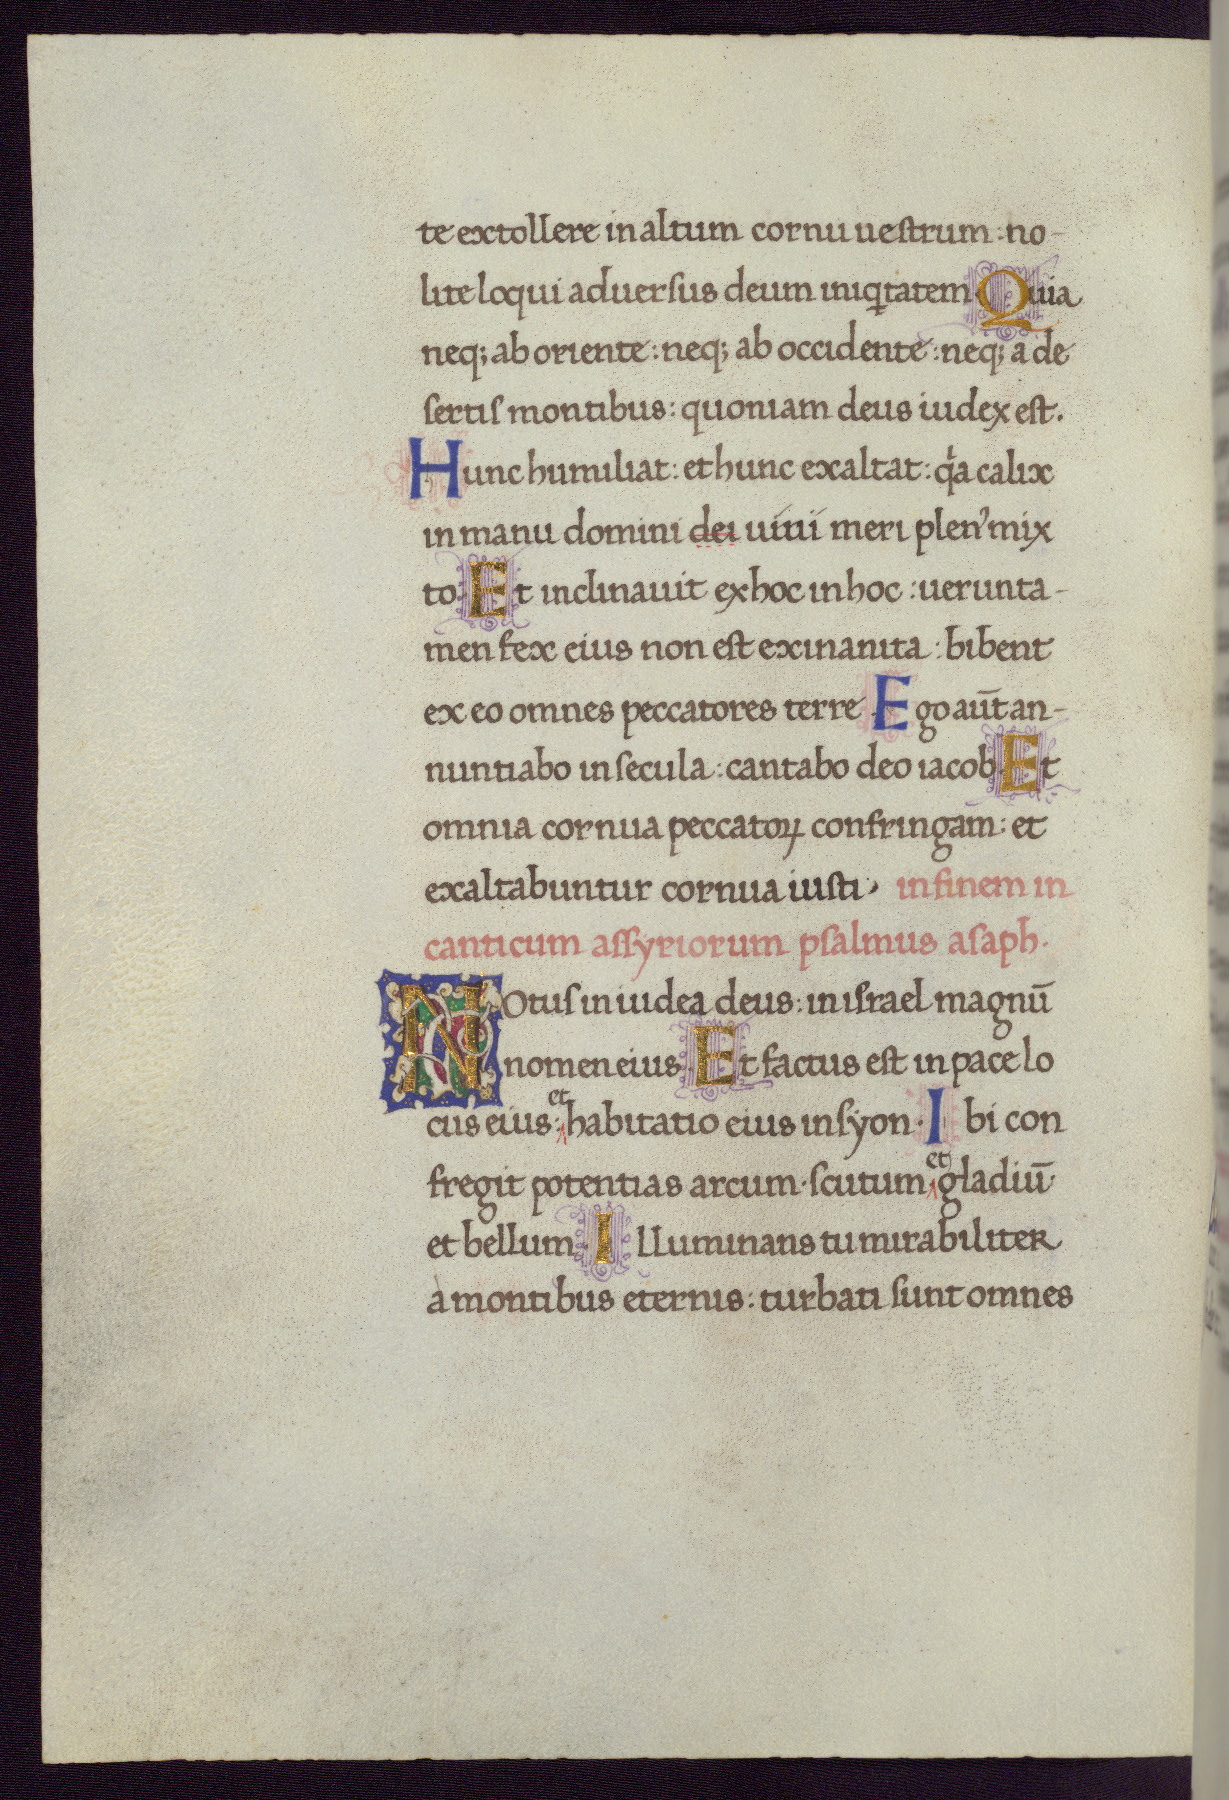 te extollere in altum cornu uestrum : no-
lite loqui aduersus deum iniq̇tatem Quia
neq; ab oriente : neq; ab occidente : neq; a de
sertis montibus : quoniam deus iudex est.
Hunc humiliat : et hunc exaltat : qa̍ calix
in manu domini dei uini meri plen᾽ mix
to Et inclinauit ex hoc in hoc : uerunta-
men fex eius non est exinanita : bibent
ex eo omnes peccatores terre Ego aut̄ an-
nuntiabo in secula : cantabo deo iacob Et
omnia cornua peccatoꝝ confringam : et
exaltabuntur cornua iusti · in finem in
canticum assyriorum psalmus asaph.
NOtus in iudea deus : in israel magnū
nomen eius Et factus est in pace lo
cus eius : et habitatio eius in syon · Ibi con
fregit potentias arcum · scutum et gladiū ·
et bellum · Illuminans tu mirabiliter
a montibus eternis : turbati sunt omnes